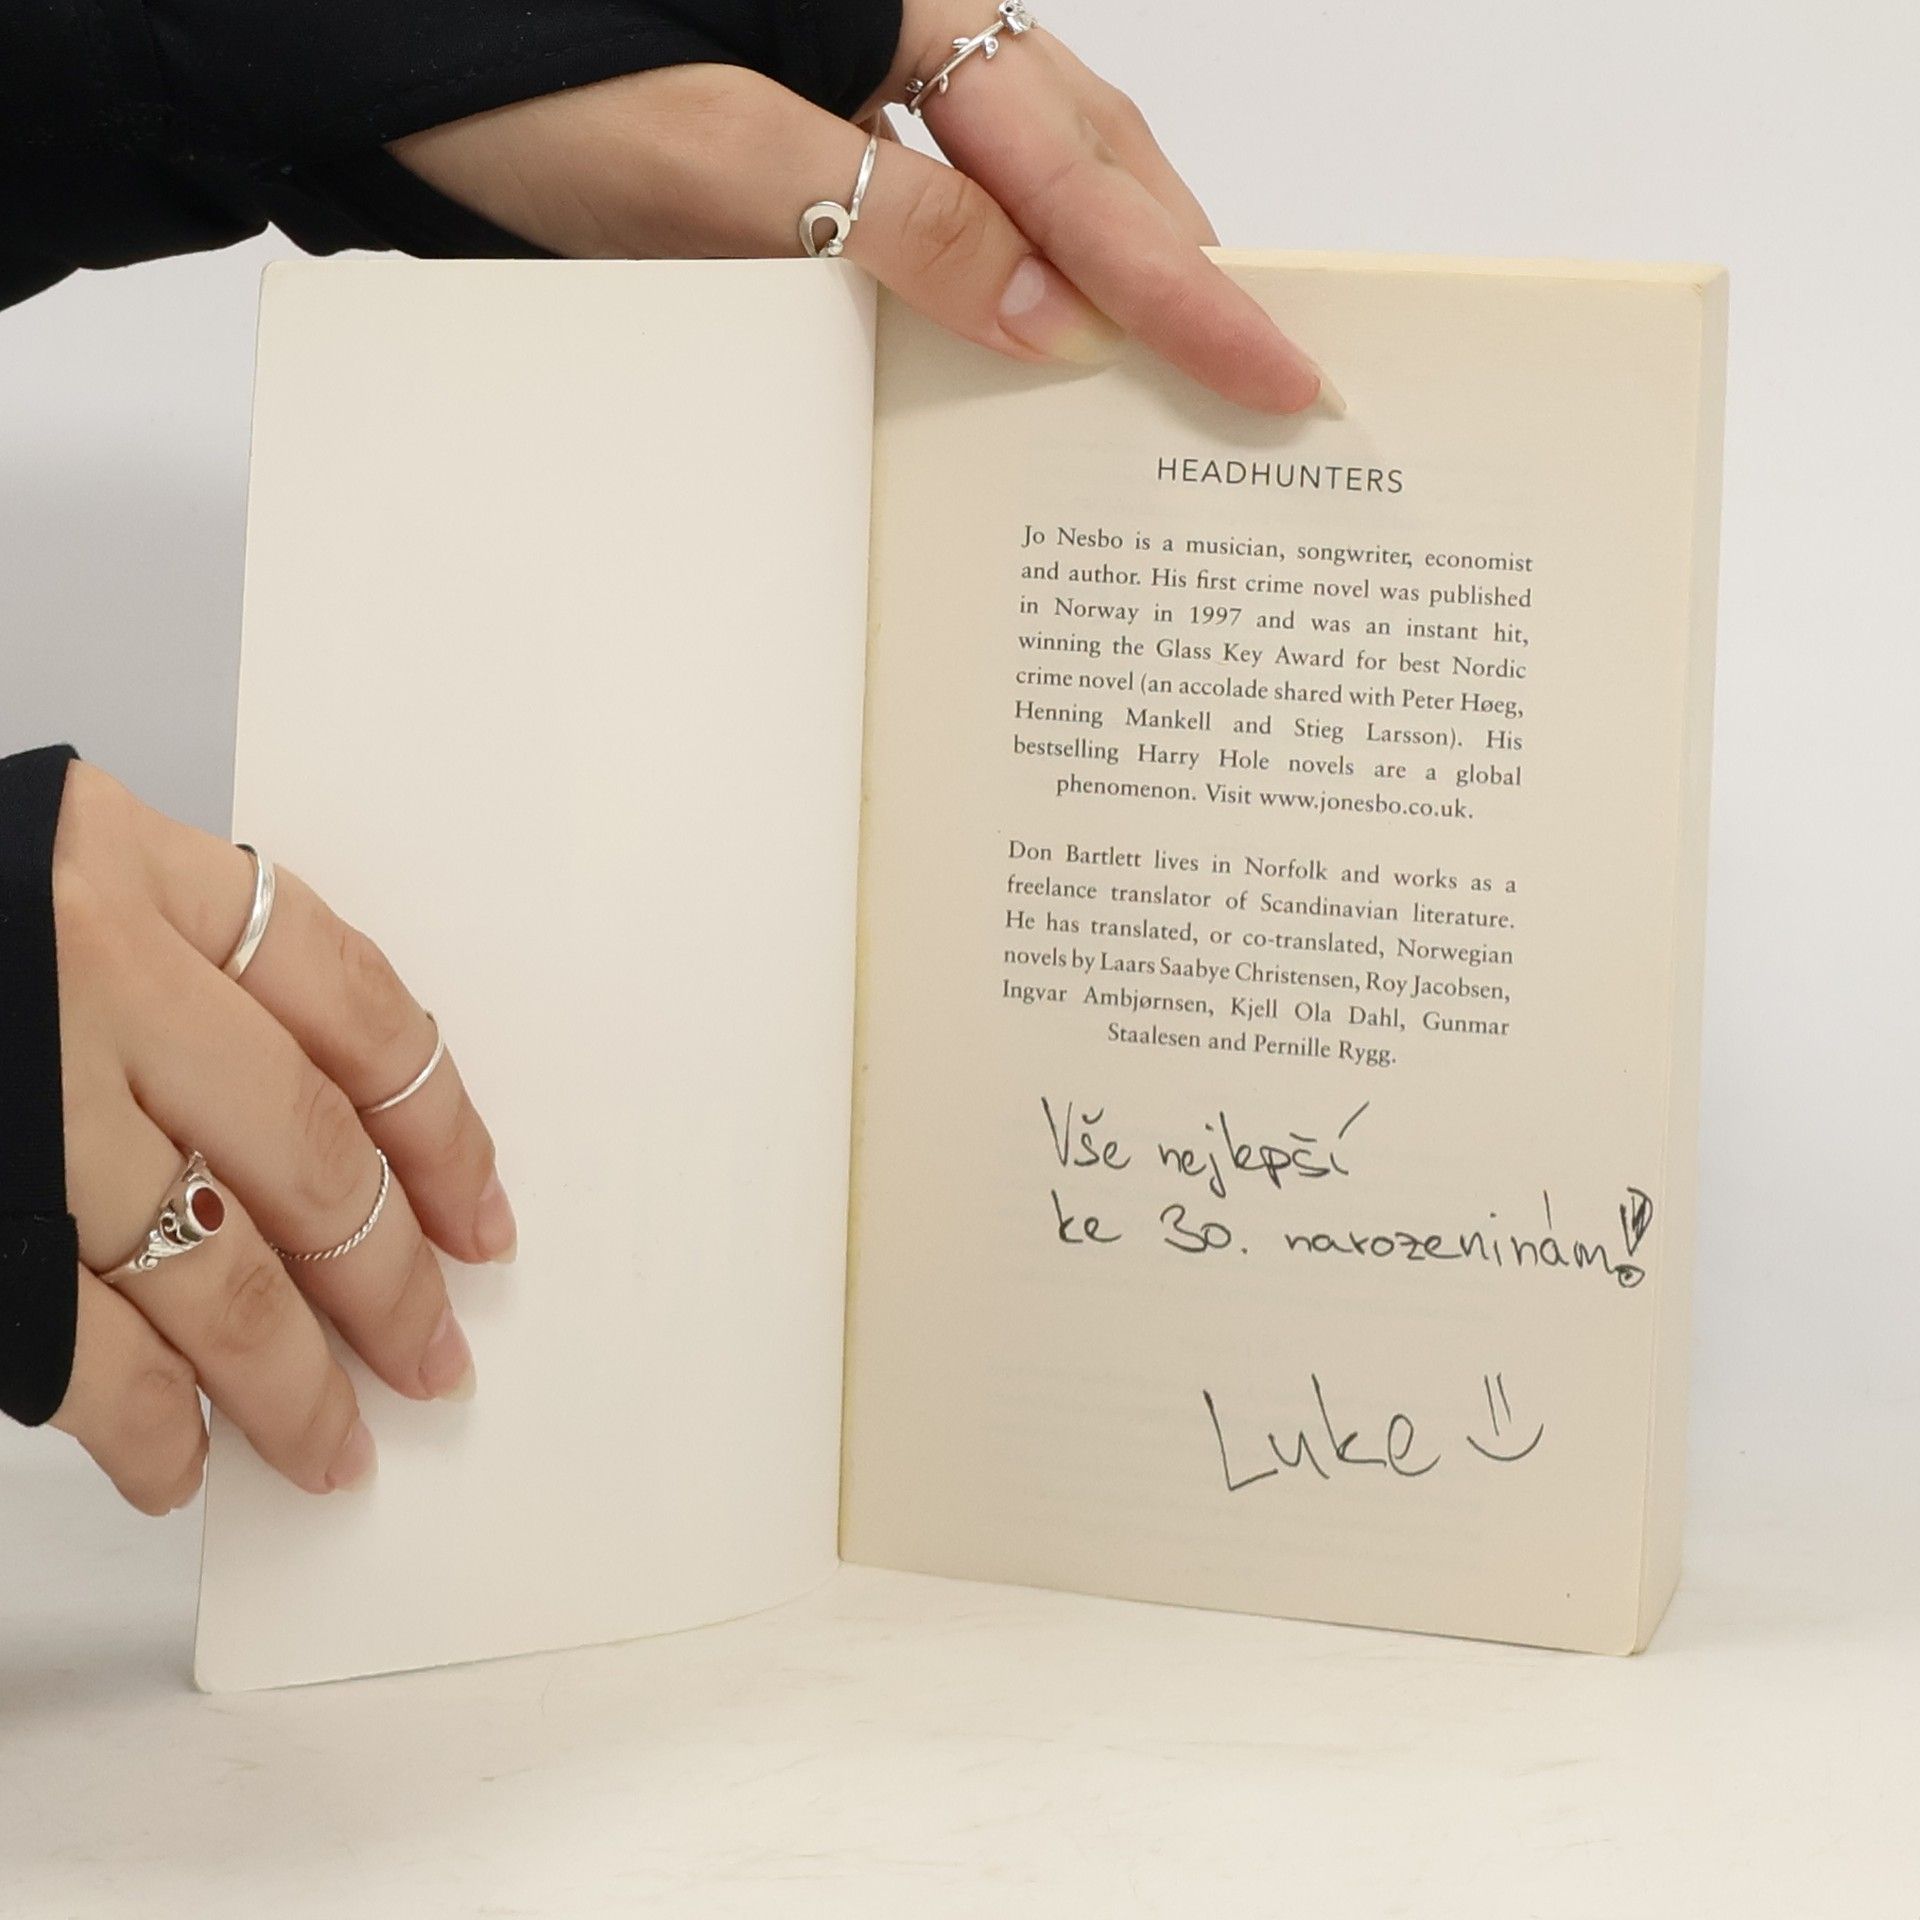 HEADHUNTERS
Jo Nesbo is a musician, songwriter, economist
and author. His first crime novel was published
in Norway in 1997 and was an instant hit,
winning the Glass Key Award for best Nordic
crime novel (an accolade shared with Peter Høeg,
Henning Mankell and Stieg Larsson). His
bestselling Harry Hole novels are a global
phenomenon. Visit www.jonesbo.co.uk.
Don Bartlett lives in Norfolk and works as a
freelance translator of Scandinavian literature.
He has translated, or co-translated, Norwegian
novels by Laars Saabye Christensen, Roy Jacobsen,
Ingvar Ambjørnsen, Kjell Ola Dahl, Gunmar
Staalesen and Pernille Rygg.
Vše nejlepší
ke 30. narozeninám!
Luke =)